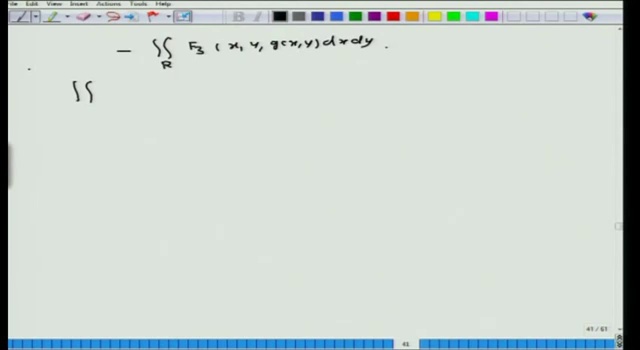 File Edit View Insert Actions Tools Help
− ∬ F₃ (x, y, g(x,y) dx dy.
R
∬
41 / 61
41